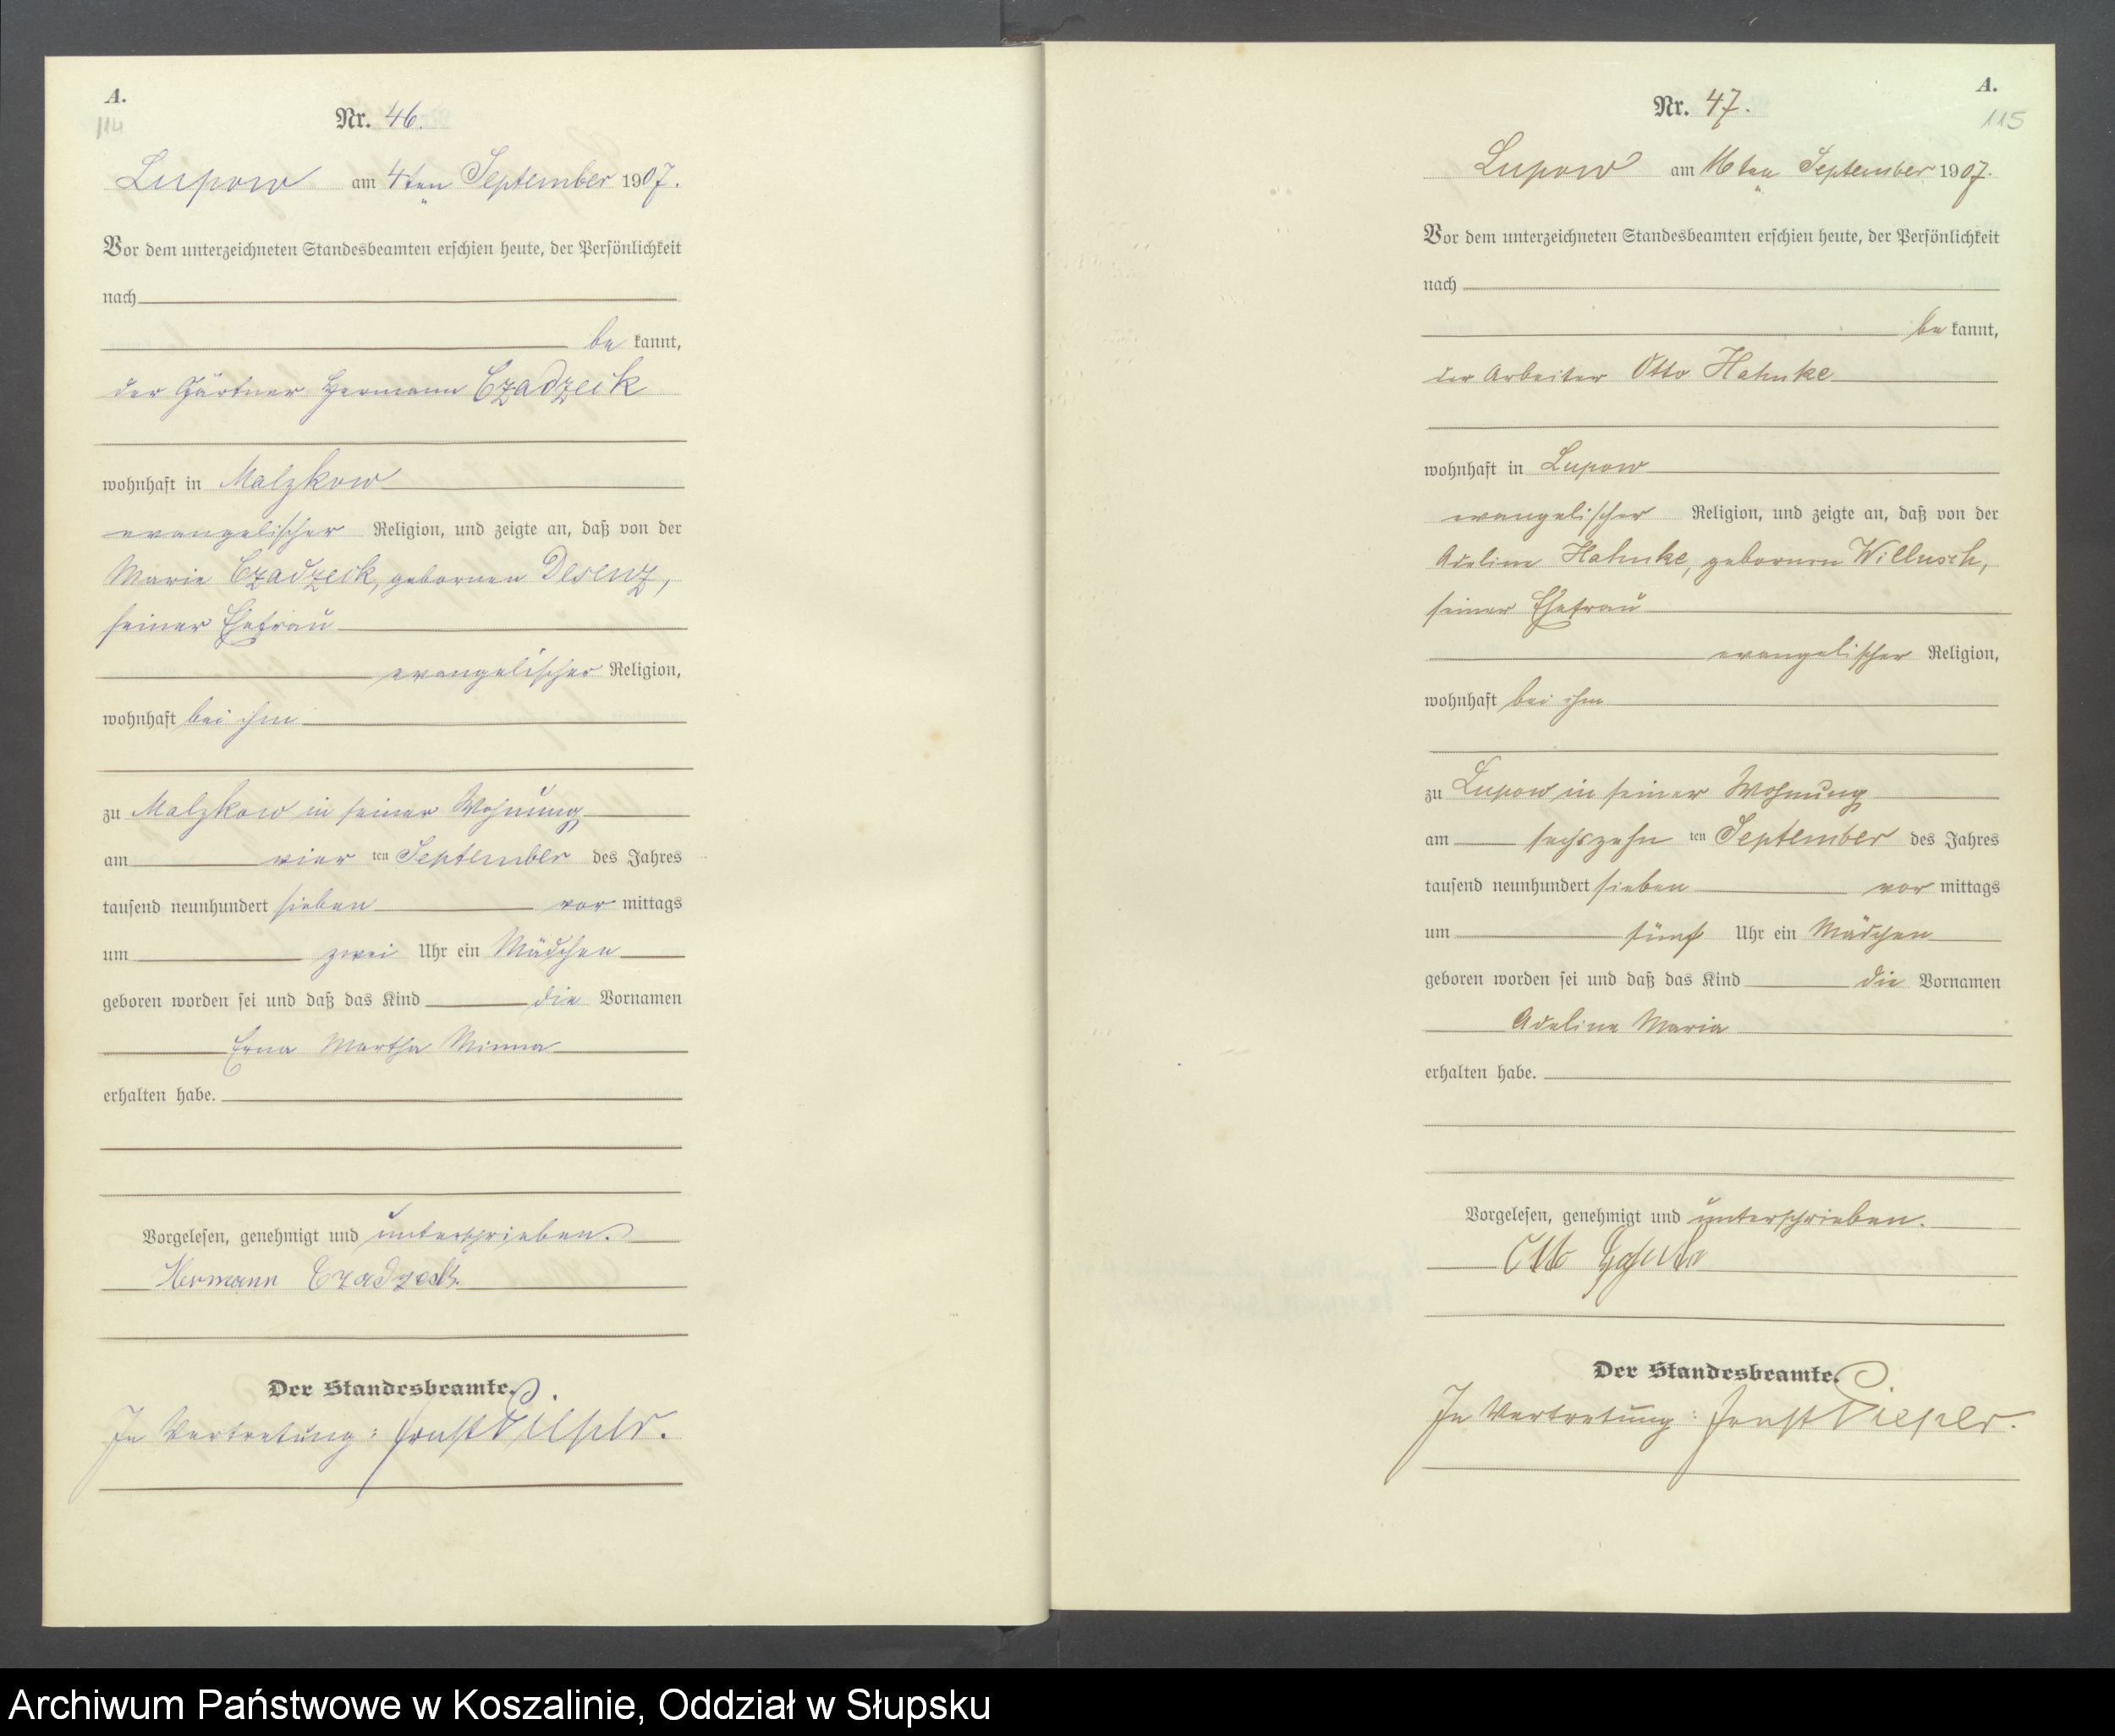 A.
114
Nr. 46.
Lupow am 4ten September 1907.
Vor dem unterzeichneten Standesbeamten erschien heute, der Persönlichkeit
nach
be kannt,
der Gärtner Hermann Czadzeck
wohnhaft in Malzkow
evangelischer Religion, und zeigte an, daß von der
Marie Czadzeck, geborenen Desenz,
seiner Ehefrau
evangelischer Religion,
wohnhaft bei ihm
zu Malzkow in seiner Wohnung
am vier ten September des Jahres
tausend neunhundert sieben vor mittags
um zwei Uhr ein Mädchen
geboren worden sei und daß das Kind die Vornamen
Erna Martha Minna
erhalten habe.
Vorgelesen, genehmigt und unterschrieben.
Hermann Czadzeck
Der Standesbeamte.
In Vertretung: Ernst Pieper.
A.
115
Nr. 47.
Lupow am 16ten September 1907.
Vor dem unterzeichneten Standesbeamten erschien heute, der Persönlichkeit
nach
be kannt,
der Arbeiter Otto Hahnke
wohnhaft in Lupow
evangelischer Religion, und zeigte an, daß von der
Adeline Hahnke, geborenen Willusch,
seiner Ehefrau
evangelischer Religion,
wohnhaft bei ihm
zu Lupow in seiner Wohnung
am sechszehn ten September des Jahres
tausend neunhundert sieben vor mittags
um fünf Uhr ein Mädchen
geboren worden sei und daß das Kind die Vornamen
Adeline Maria
erhalten habe.
Vorgelesen, genehmigt und unterschrieben.
Otto Hahnke
Der Standesbeamte.
In Vertretung: Ernst Pieper.
Archiwum Państwowe w Koszalinie, Oddział w Słupsku